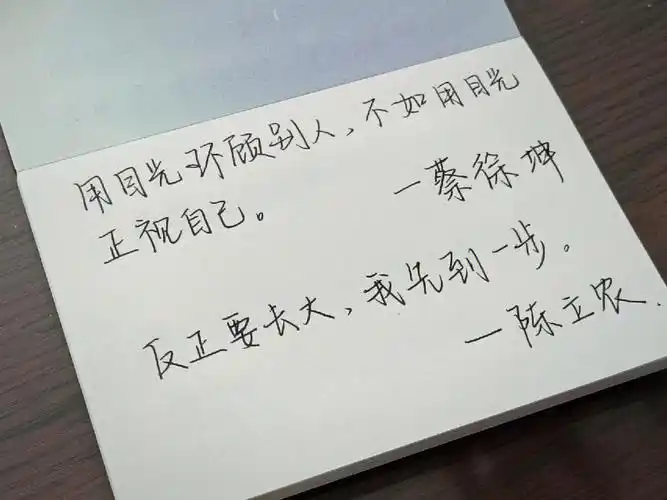 用目光环顾别人，不如用目光
正视自己。
—蔡徐坤
反正要长大，我先到一步。
—陈立农.